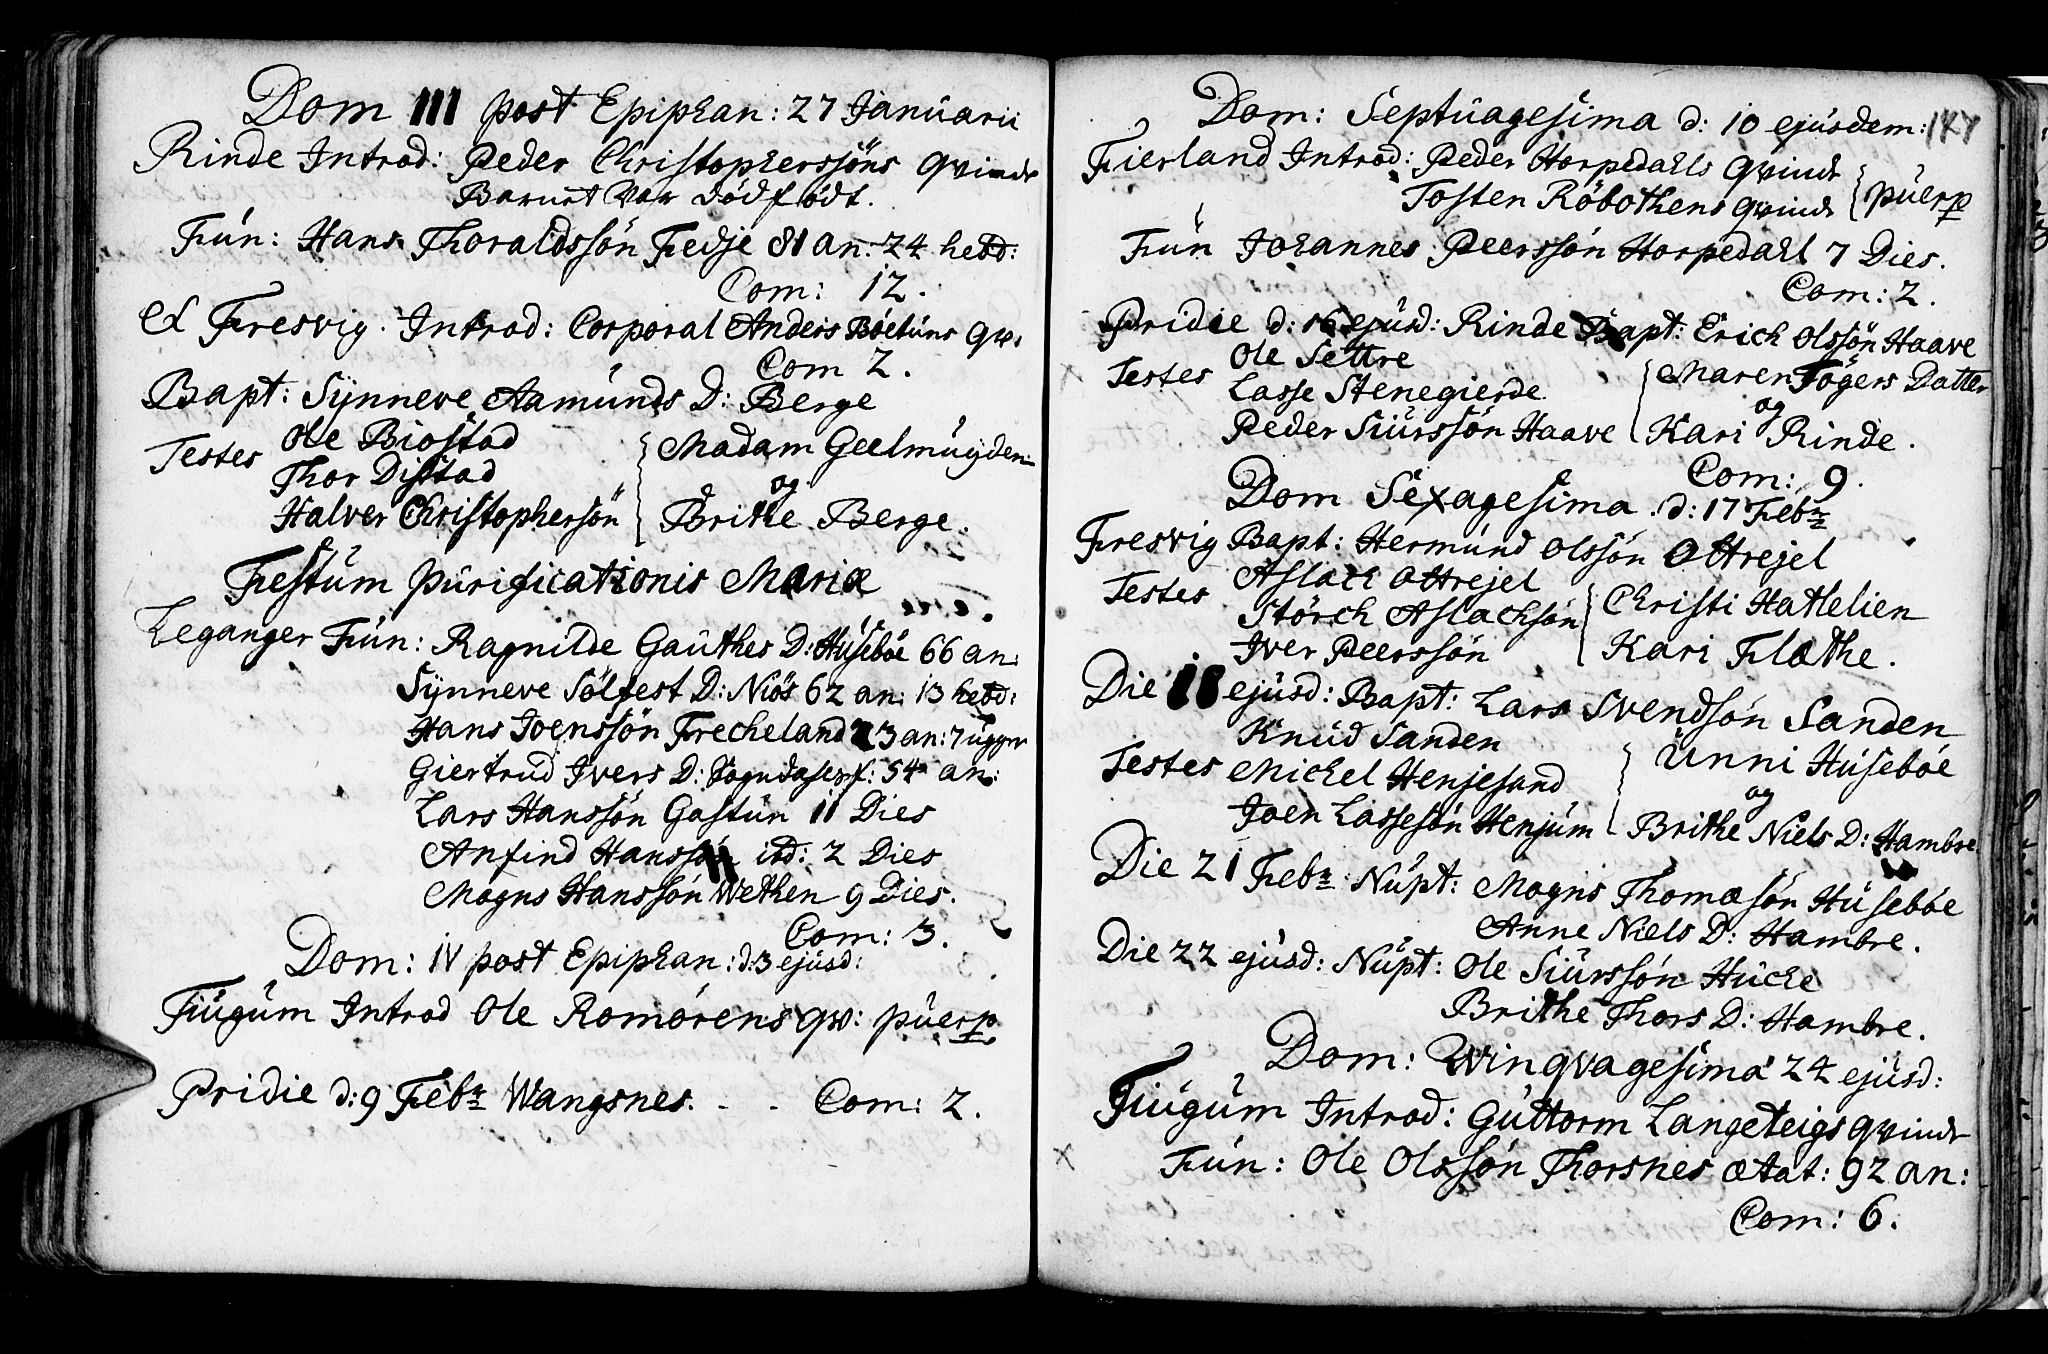 Dom III post Epiphan: 27 Januarii
Rinde Introd: Peder Christopherssöns qvinde
Barnet var dödfødt.
Fun: Hans Thoraldssön Fedje 81 an: 24 hebd:
Com: 12.
Et Fresvig. Introd: Corporal Anders Böetuns qv:
Com 2.
Bapt: Synneve Aamunds D: Berge
Testes Ole Biostad
Thor Distad
Halver Christophersön
Madam Geelmuyden
og
Brithe Berge.
Festum Purificationis Mariæ
Leganger Fun: Ragnilde Gauthes D: Huseböe 66 an:
Synneve Sölfest D: Niös 62 an: 13 hebd:
Hans Joenssön Frecheland 23 an: 7 uger
Giertrud Ivers D: 54 an:
Lars Hanssön Gastun 11 Dies
Anfind Hanssön ibd: 2 Dies
Mogns Hanssön Wethen 9 Dies.
Com: 3.
Dom: IV post Epiphan: d: 3 ejusd:
Fiugum Introd Ole Romörens qv: puerp
Pridie d: 9 Febr Wangsnes. - - Com: 2.
147
Dom: Septuagesima d: 10 ejusdem:
Fierland Introd: Peder Horpedahls qvinde
Tosten Röbothens qvinde puerp
Fun Johannes Peerssön Horpedahl 7 Dies.
Com: 2.
Pridie d: 16 ejusd: Rinde Bapt: Erich Olssön Haave
Testes Ole Settre
Lasse Stenegierde
Peder Siurssön Haave
Maren Fögers Datter
og
Kari Rinde.
Com: 9.
Dom Sexagesima. d: 17 Febr
Fresvig Bapt: Hermund Olssön Ottrejel
Testes Aslach Ottrejel
Störch Aslachsön
Iver Peerssön
Christi Hatlelien
Kari Flæthe.
Die 18 ejusd: Bapt: Lars Svendsön Sanden
Knud Sanden
Testes Michel Henjesand
Joen Lassesön Henjum
Unni Huseböe
og
Brithe Niels D: Hambre.
Die 21 Febr Nupt: Mogns Thomæsön Huseböe
Anne Niels D: Hambre.
Die 22 ejusd: Nupt: Ole Siurssön Hucke
Brithe Thors D: Hambre.
Dom: Qvinqvagesima 24 ejusd:
Fiugum Introd: Guttorm Langeteigs qvinde
Fun: Ole Olssön Thorsnes ætat: 92 an:
Com: 6.